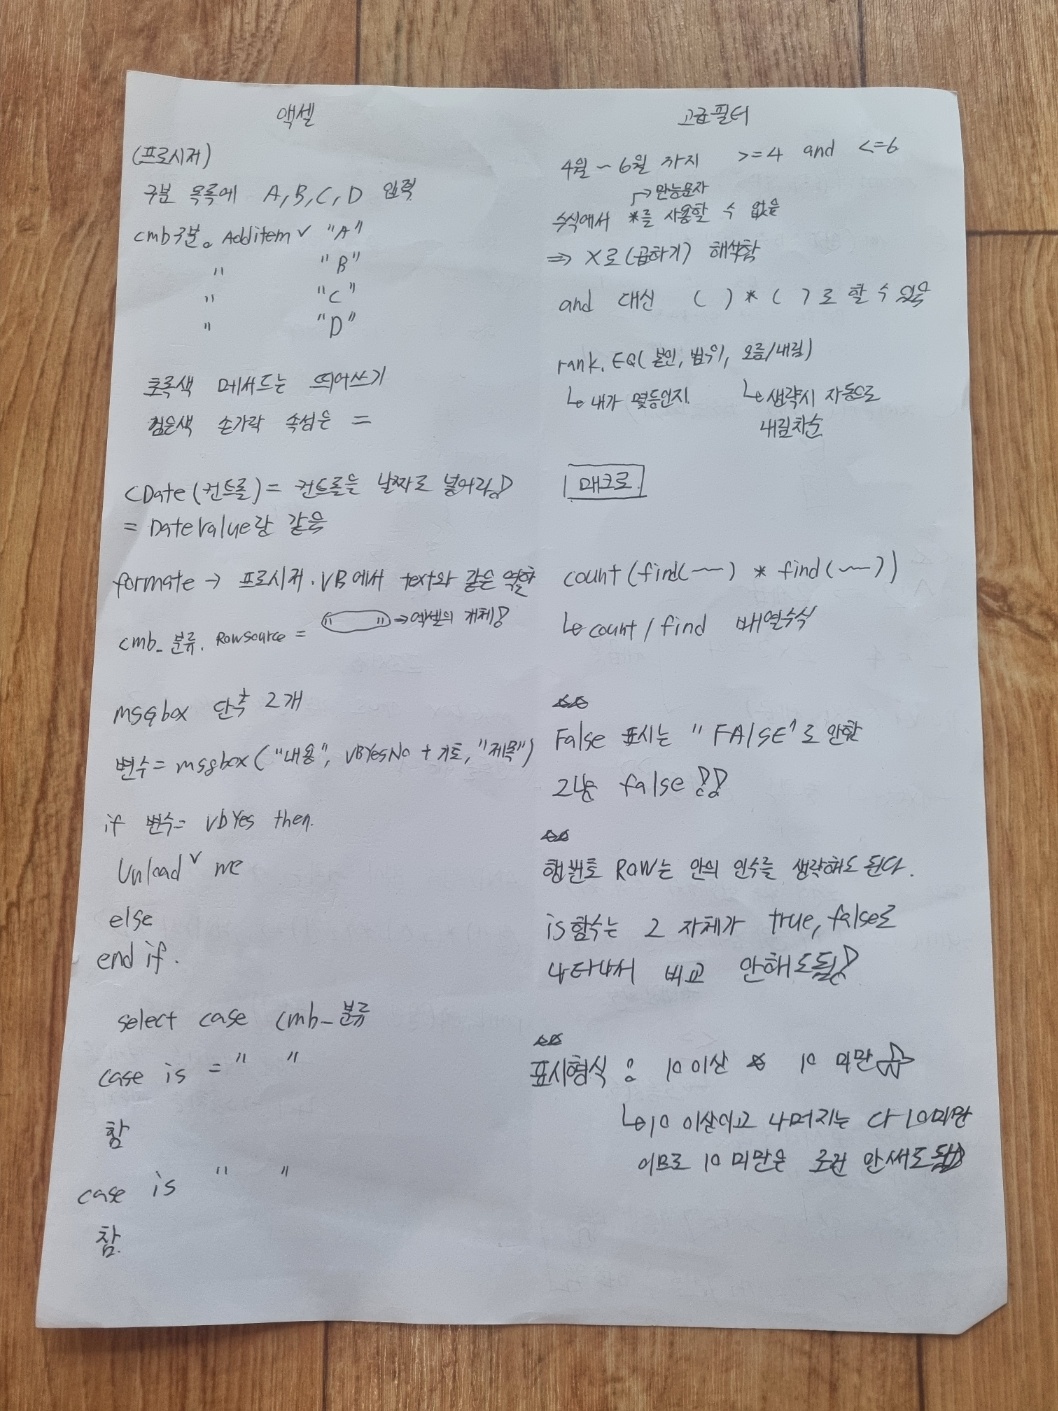 액셀
(프로시저)
구분 목록에 A, B, C, D 입력
cmb구분. Additem∨ "A"
〃 "B"
〃 "C"
〃 "D"
초록색 메서드는 띄어쓰기
검은색 손가락 속성은 =
CDate(컨트롤) = 컨트롤을 날짜로 넣어라!
= Datevalue랑 같음
formate → 프로시저. VB에서 text와 같은 역할
cmb_분류. Rowsource = " " → 엑셀의 개체!
msgbox 단축 2개
변수= msgbox("내용", VBYesNo + 기호, "제목")
if 변수= vbYes then.
Unload∨ me
else
end if.
select case cmb_분류
case is = " "
참
case is " "
참.
고급필터
4월 ~ 6월 까지 >=4 and <=6
→ 만능문자
수식에서 *를 사용할 수 없음
⇒ X로 (곱하기) 해석함
and 대신 ( ) * ( )로 할 수 있음
rank. EQ( 본인, 범위, 오름/내림)
↳ 내가 몇등인지. ↳ 생략시 자동으로
내림차순
매크로
count(find(~~) * find(~~))
↳ count / find 배열수식
☆☆
False 표시는 "FAlSE"로 안함
그냥 false !!
☆☆
행번호 ROW는 안의 인수를 생략해도 된다.
is함수는 그 자체가 true, false로
나타나서 비교 안해도됨!
☆☆
표시형식 : 10 이상 ☆ 10 미만 ☆
↳ 10 이상이고 나머지는 다 10미만
이므로 10 미만은 조건 안써도됨